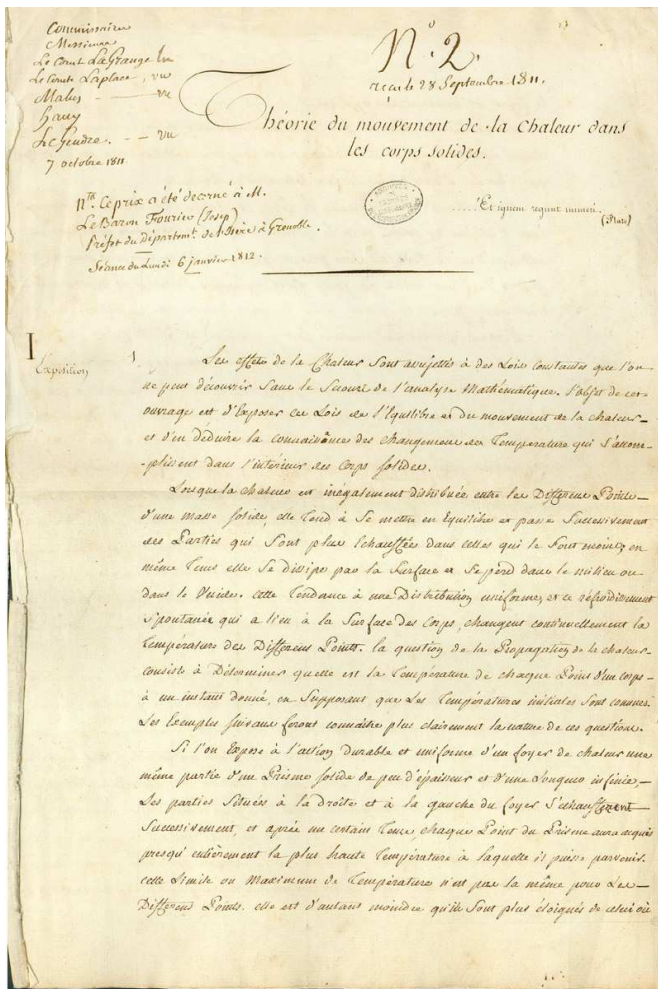 Commissaires
Messieurs
Le Comte LaGrange
Le Comte Laplace, vu
Malus — vu
Hauy
Le Gendre. — vu
7 octobre 1811
N.º 2.
reçu le 28 Septembre 1811.
Théorie du mouvement de la Chaleur dans
les corps solides.
Nta. Ce prix a été décerné à M.
Le Baron Fourier (Josep)
Préfet du départemt. de l'Isère à Grenoble.
Séance du Lundi 6 janvier 1812.
.....Et ignem regunt numeri.
(Plato)
I
Exposition
1
Les effets de la Chaleur Sont assujettis à des Lois constantes que l'on
ne peut découvrir Sans le Secours de l'analyse Mathématique. l'objet de cet
ouvrage est d'Exposer ces Lois de l'Equilibre et du mouvement de la chaleur
et d'en déduire la connaissance des changemens de Température qui S'accom-
-plissent dans l'intérieur des Corps Solides.
Lorsque la chaleur est inégalement distribuée entre les Différens Points
d'une masse Solide, elle Tend à Se mettre en Equilibre et passe Successivement
des Parties qui Sont plus Echauffées dans celles qui le Sont moins; en
même Tems elle Se dissipe par la Surface et Se perd dans le milieu ou
dans le Vuide. cette Tendance à une Distribution uniforme, et ce réfroidissement
Spontanée qui a lieu à la Surface des Corps, changent continuellement la
Température des Différens Points. la question de la Propagation de la chaleur
consiste à Déterminer quelle est la Température de chaque Point d'un corps
à un instant donné, en Supposant que Les Températures initiales Sont connues.
Les Exemples Suivans feront connaître plus clairement la nature de ces question.
Si l'on Expose à l'action durable et uniforme d'un foyer de chaleur une
même partie d'un Prisme Solide de peu d'épaisseur et d'une Longueur infinie,
Les parties Situées à la droite et à la gauche du foyer S'échauffent
Successivement, et après un certain Tems, chaque Point du Prisme aura acquis
presqu'entièrement la plus haute Température à laquelle il puisse parvenir.
cette Limite ou Maximum de Température n'est pas la même pour Les
Différens Points. elle est d'autant moindre qu'ils Sont plus éloignés de celui où